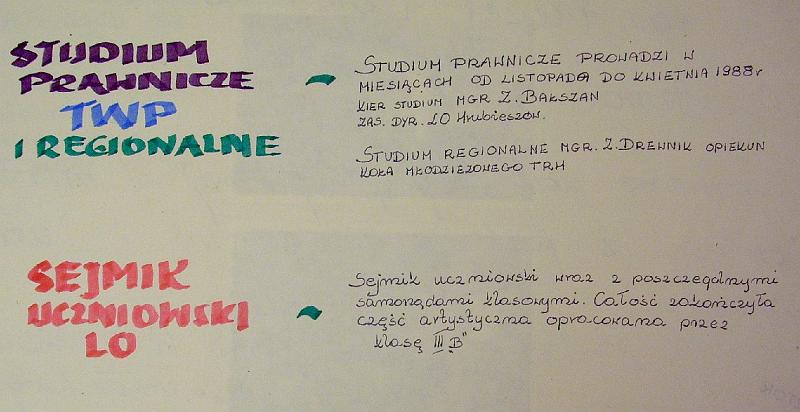 STUDIUM
PRAWNICZE
TWP
I REGIONALNE
STUDIUM PRAWNICZE PROWADZI W
MIESIĄCACH OD LISTOPADA DO KWIETNIA 1988r
KIER STUDIUM MGR Z. BAŁSZAN
ZAS. DYR. LO Hrubieszów.
STUDIUM REGIONALNE MGR. Z. DREWNIK OPIEKUN
KOŁA MŁODZIEŻOWEGO TRH
SEJMIK
UCZNIOWSKI
LO
Sejmik uczniowski wraz z poszczególnymi
samorządami klasowymi. Całość zakończyła
część artystyczna opracowana przez
klasę III B"